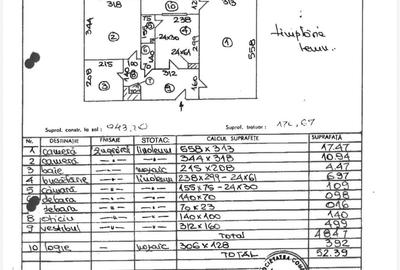 318
10
238
313
344
2
75
155
24x30
299
1
558
24x61
215
312
208
3
160
timplărie
lemn
Supraf. constr. la sol : 943,20 Supraf. traduor : 172,67
Nr. DESTINAȚIE FINISAJE STOTAC. CALCUL SUPRAFEȚE SUPRAFAȚĂ
1 cameră zugrăvit linoleum 558x313 17.47
2 cameră —"— —"— 344x318 10.94
3 baie —"— mozaic 215x208 4.47
4 bucătărie —"— linoleum 238x299-24x61 6.97
5 cămară —"— —"— 155x75-24x30 1.09
6 debara —"— —"— 140x70 0.98
7 debara —"— —"— 70x23 0.16
8 oficiu —"— —"— 140x100 1.40
9 vestibul —"— —"— 312x160 4.99
Total 48.47
10 logie — mozaic 306x128 3.92
TOTAL 52.39